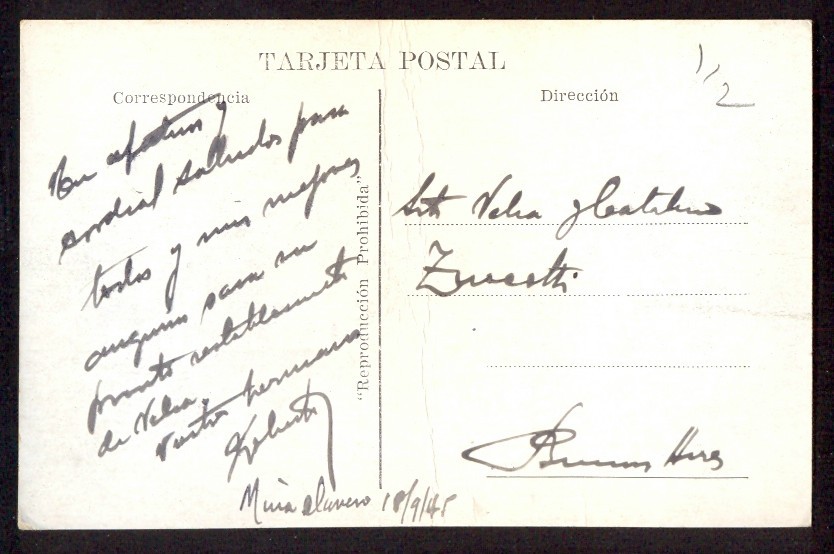 TARJETA POSTAL
Correspondencia
Dirección
1/2
Un afectuoso y
cordial saludos para
todos y mis mejores
augurios para un
pronto restablecimiento
de Velia,
Vuestro hermano
Roberto
Mina 18/9/45
"Reproducción Prohibida"
Velia y Catalina
Zuccotti
Buenos Aires